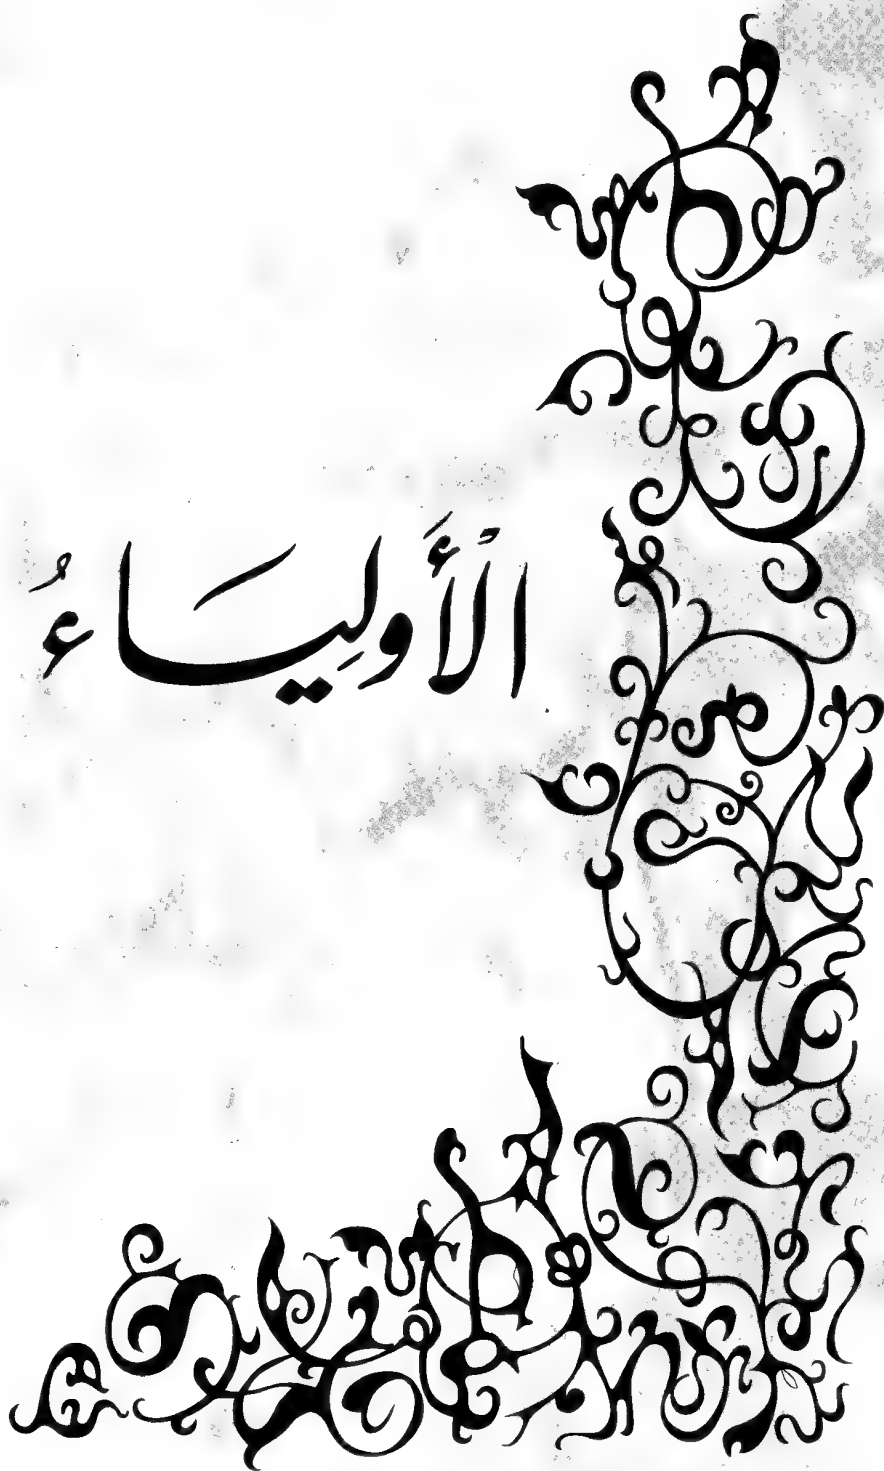 الْأَولِيَاءُ